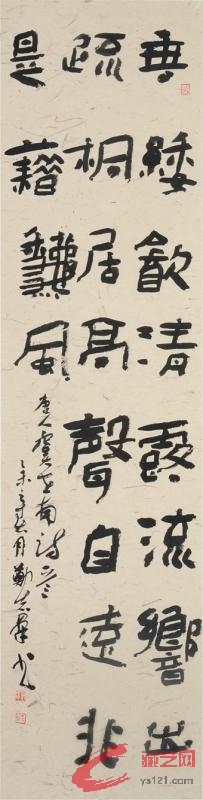 垂緌飲清露流響出
疏桐居高聲自遠非
是藉秋風
唐人虞世南詩
ys121.com